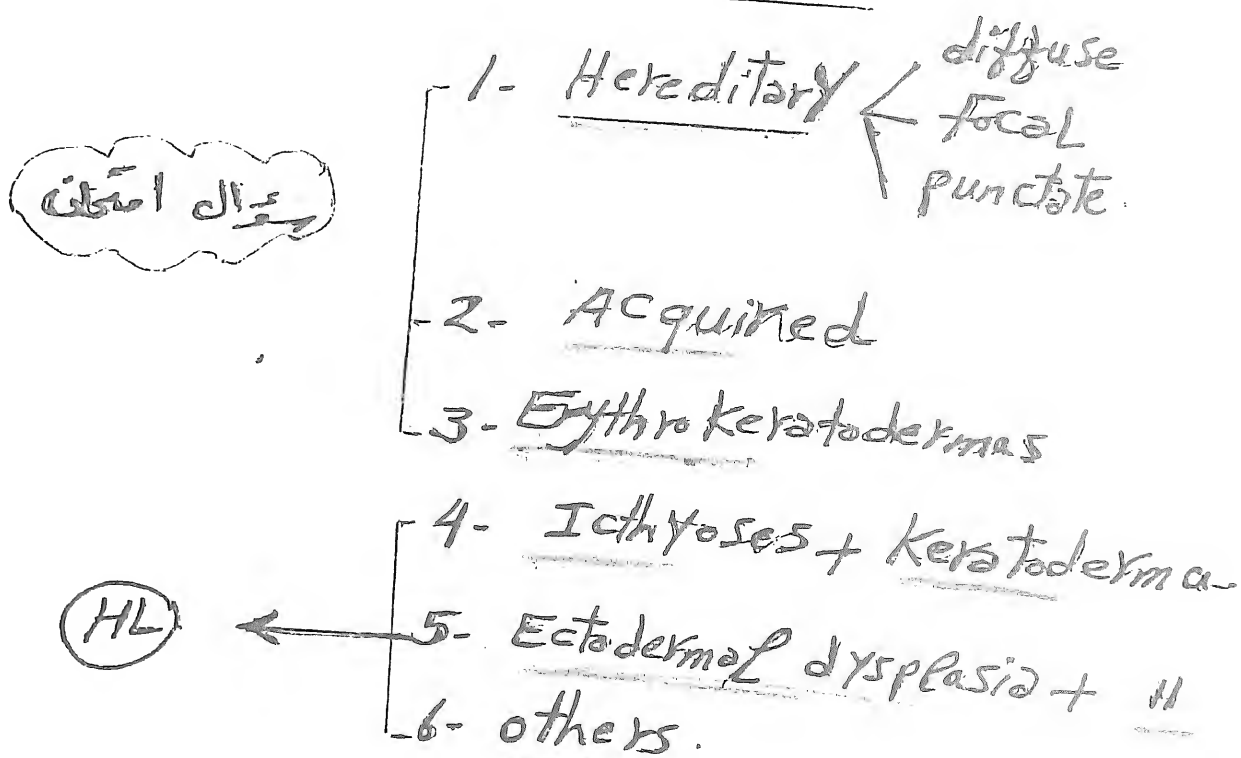 1- Hereditary
diffuse
focal
punctate.
سؤال امتحان
2- Acquired
3- Erythrokeratodermas
4- Icthyoses + Keratoderma
HL
5- Ectodermal dysplasia + "
6- others.